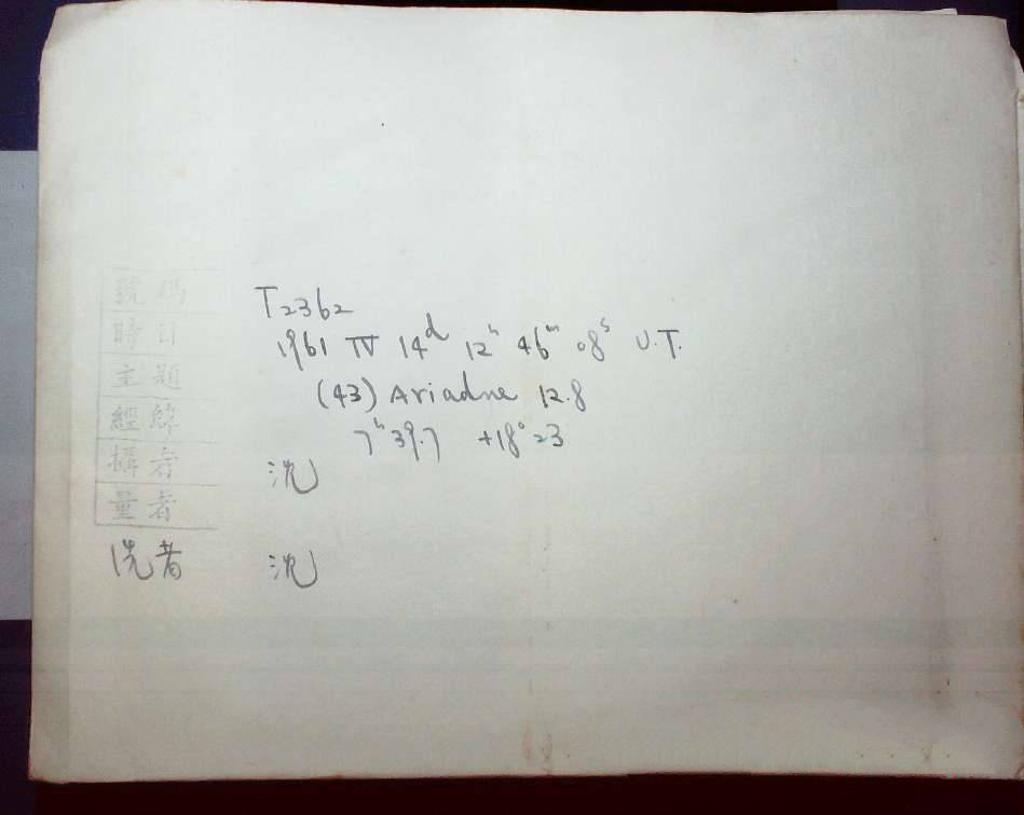 號碼 T2362
時日 1961 IV 14d 12h 46m 08s U.T.
主題 (43) Ariadne 12.8
經緯 7h 39.7 +18° 23
攝者 沈
量者
洗者 沈